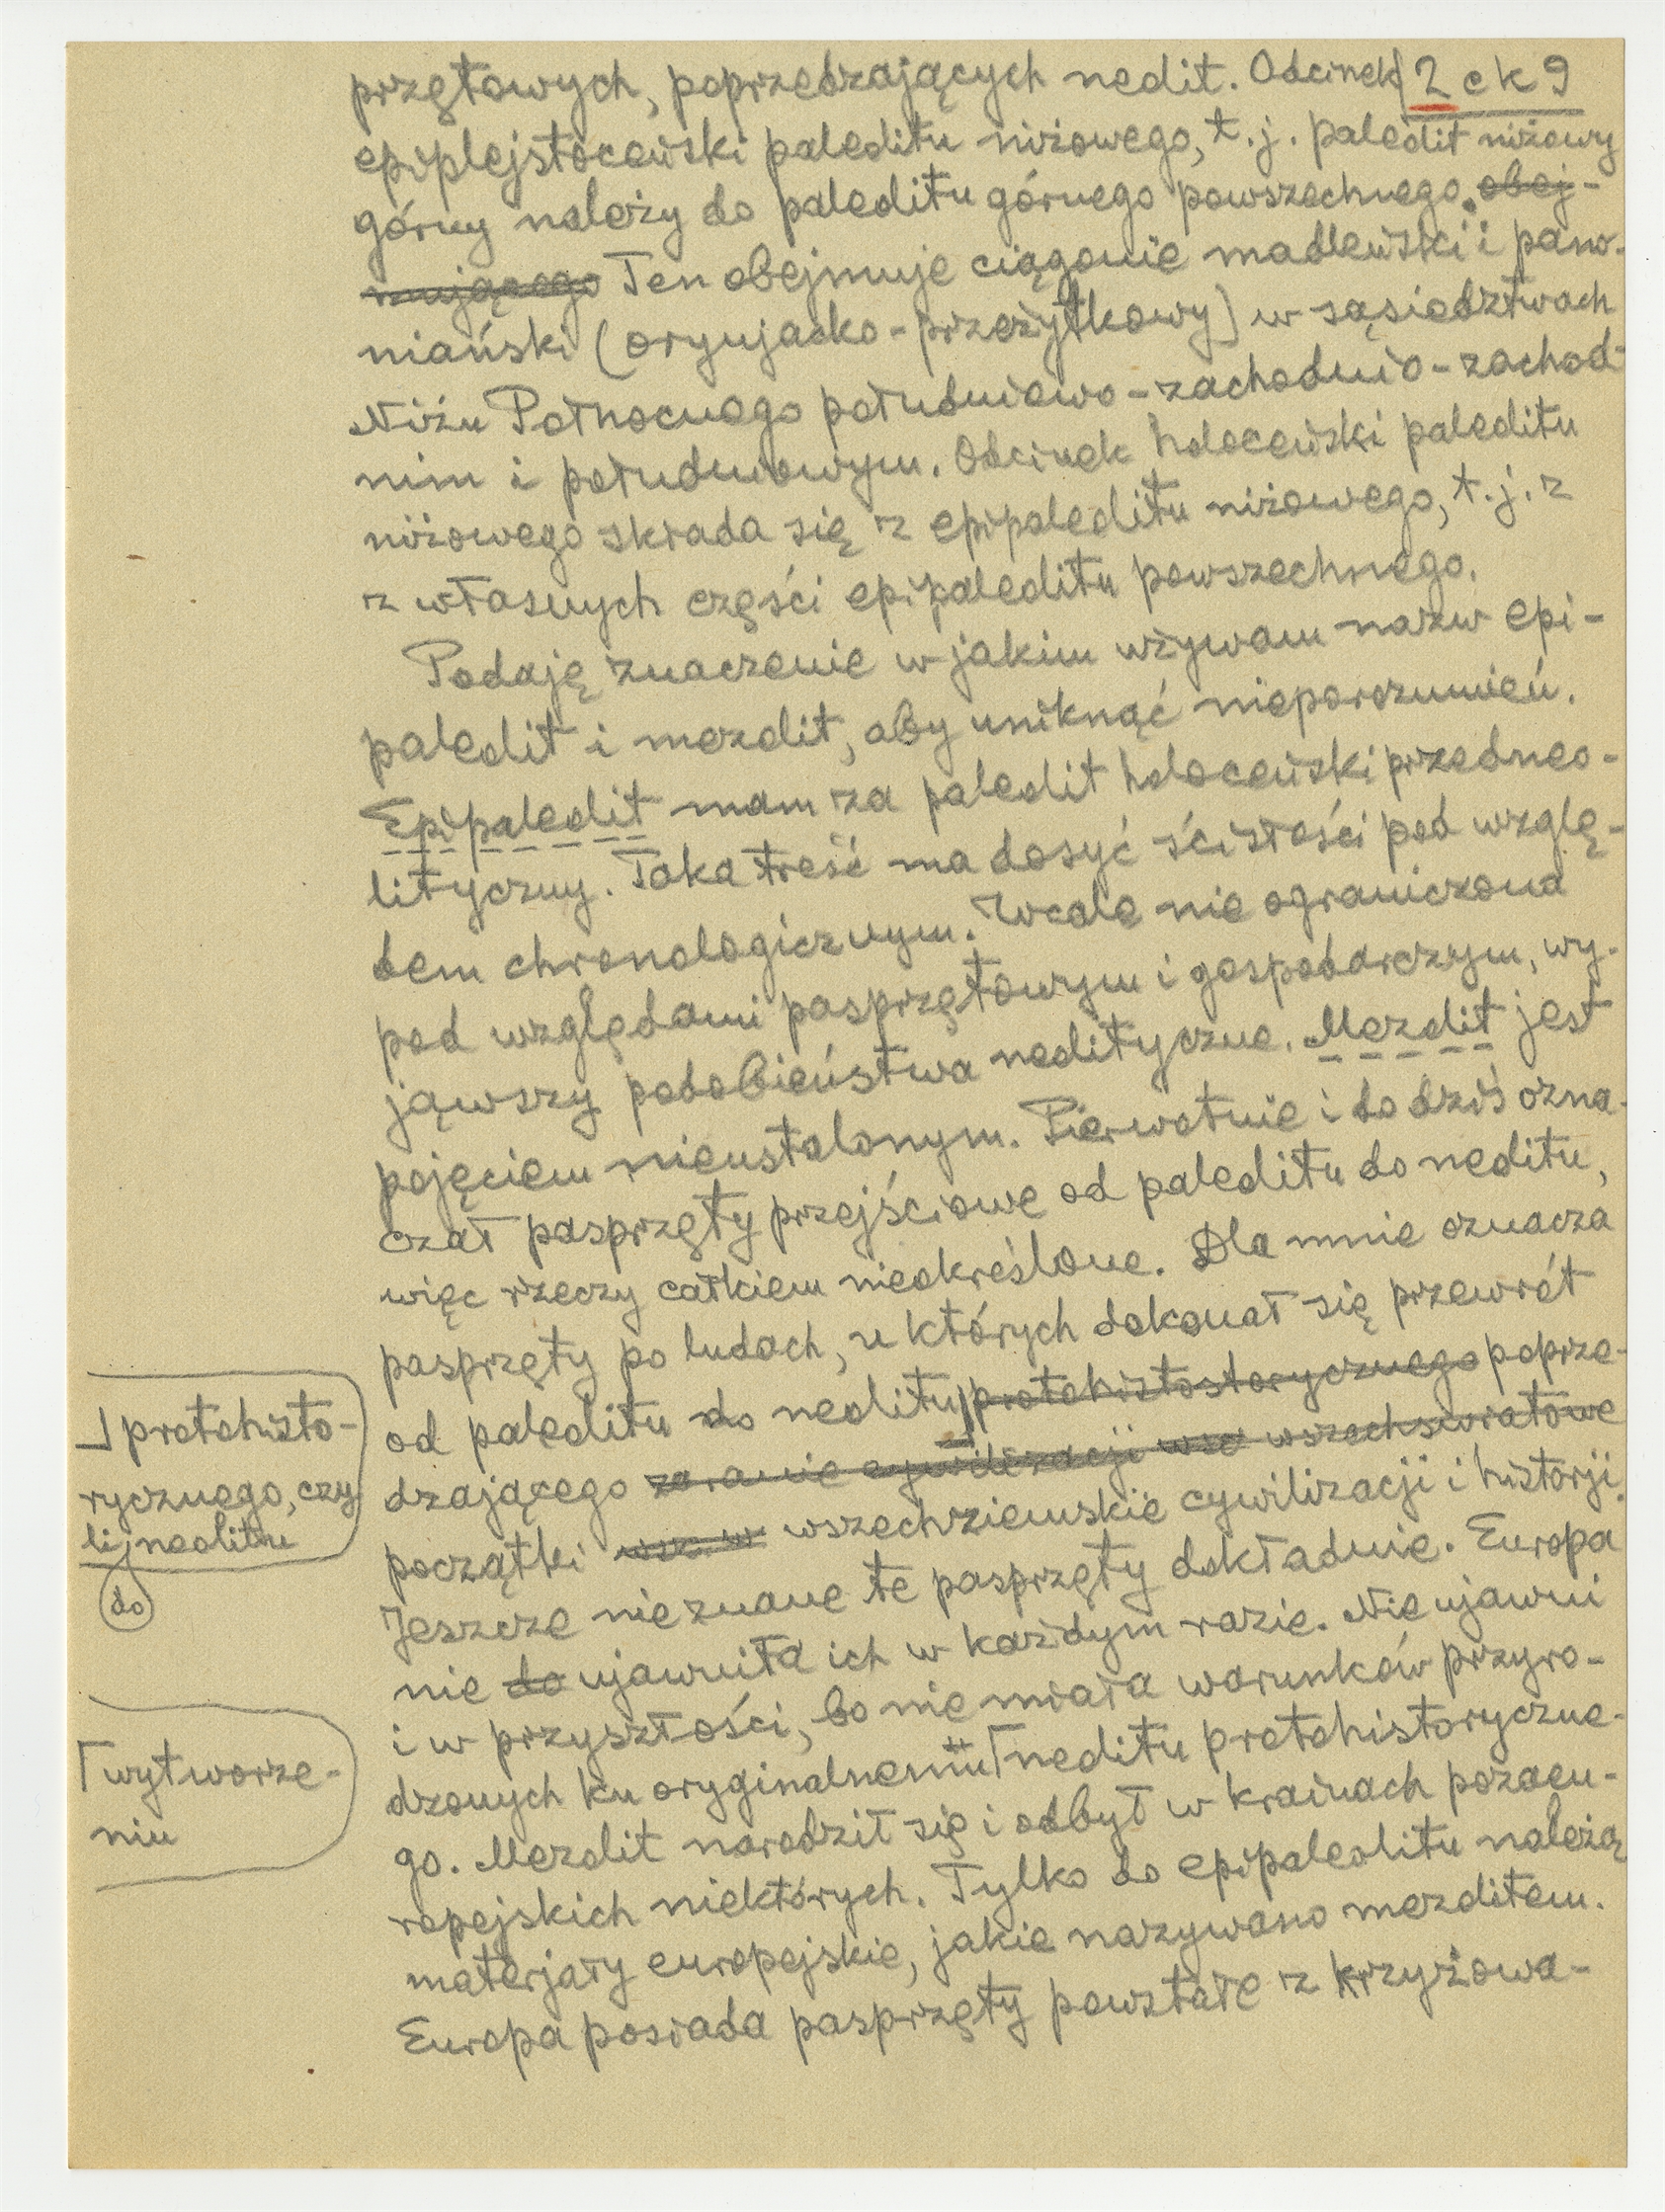 przętowych, poprzedzających neolit. Odcinek 2 ck 9
epiplejstoceński paleolitu niżowego, t.j. paleolit niżowy
górny należy do paleolitu górnego powszechnego. obej-
mującego Ten obejmuje ciągonie madleński i pano-
niański (oryniacko-przeżytkowy) w sąsiedztwach
Niżu Północnego południowo-zachodnio-zachod-
nim i południowym. Odcinek holoceński paleolitu
niżowego składa się z epipaleolitu niżowego, t.j. z
z własnych części epipaleolitu powszechnego.
Podaję znaczenie w jakim używam nazw epi-
paleolit i mezolit, aby uniknąć nieporozumień.
Epipaleolit mam za paleolit holoceński przedneo-
lityczny. Taka treść ma dosyć ścisłości pod wzglę-
dem chronologicznym. Wcale nie ograniczona
pod względami pasprzętowym i gospodarczym, wy-
jąwszy podobieństwa neolityczne. Mezolit jest
pojęciem nieustalonym. Pierwotnie i do dziś ozna-
czał pasprzęty przejściowe od paleolitu do neolitu,
więc rzeczy całkiem nieokreślone. Dla mnie oznacza
pasprzęty po ludach, u których dokonał się przewrót
od paleolitu do neolitu protohistostorycznego poprze-
dzającego zaranie cywilizacji wse wszechswiatowe
początki wszechziemskie cywilizacji i historji.
Jeszcze nieznane te pasprzęty dokładnie. Europa
nie do ujawniła ich w każdym razie. Nie ujawni
i w przyszłości, bo nie miała warunków przyro-
dzonych ku oryginalnemu neolitu protohistoryczne-
go. Mezolit narodził się i odbył w krainach pozaeu-
ropejskich niektórych. Tylko do epipaleolitu należą
materjały europejskie, jakie nazywano mezolitem.
Europa posiada pasprzęty powstałe z krzyżowa-
protohisto-
rycznego, czy
li neolitu
do
wytworze-
niu